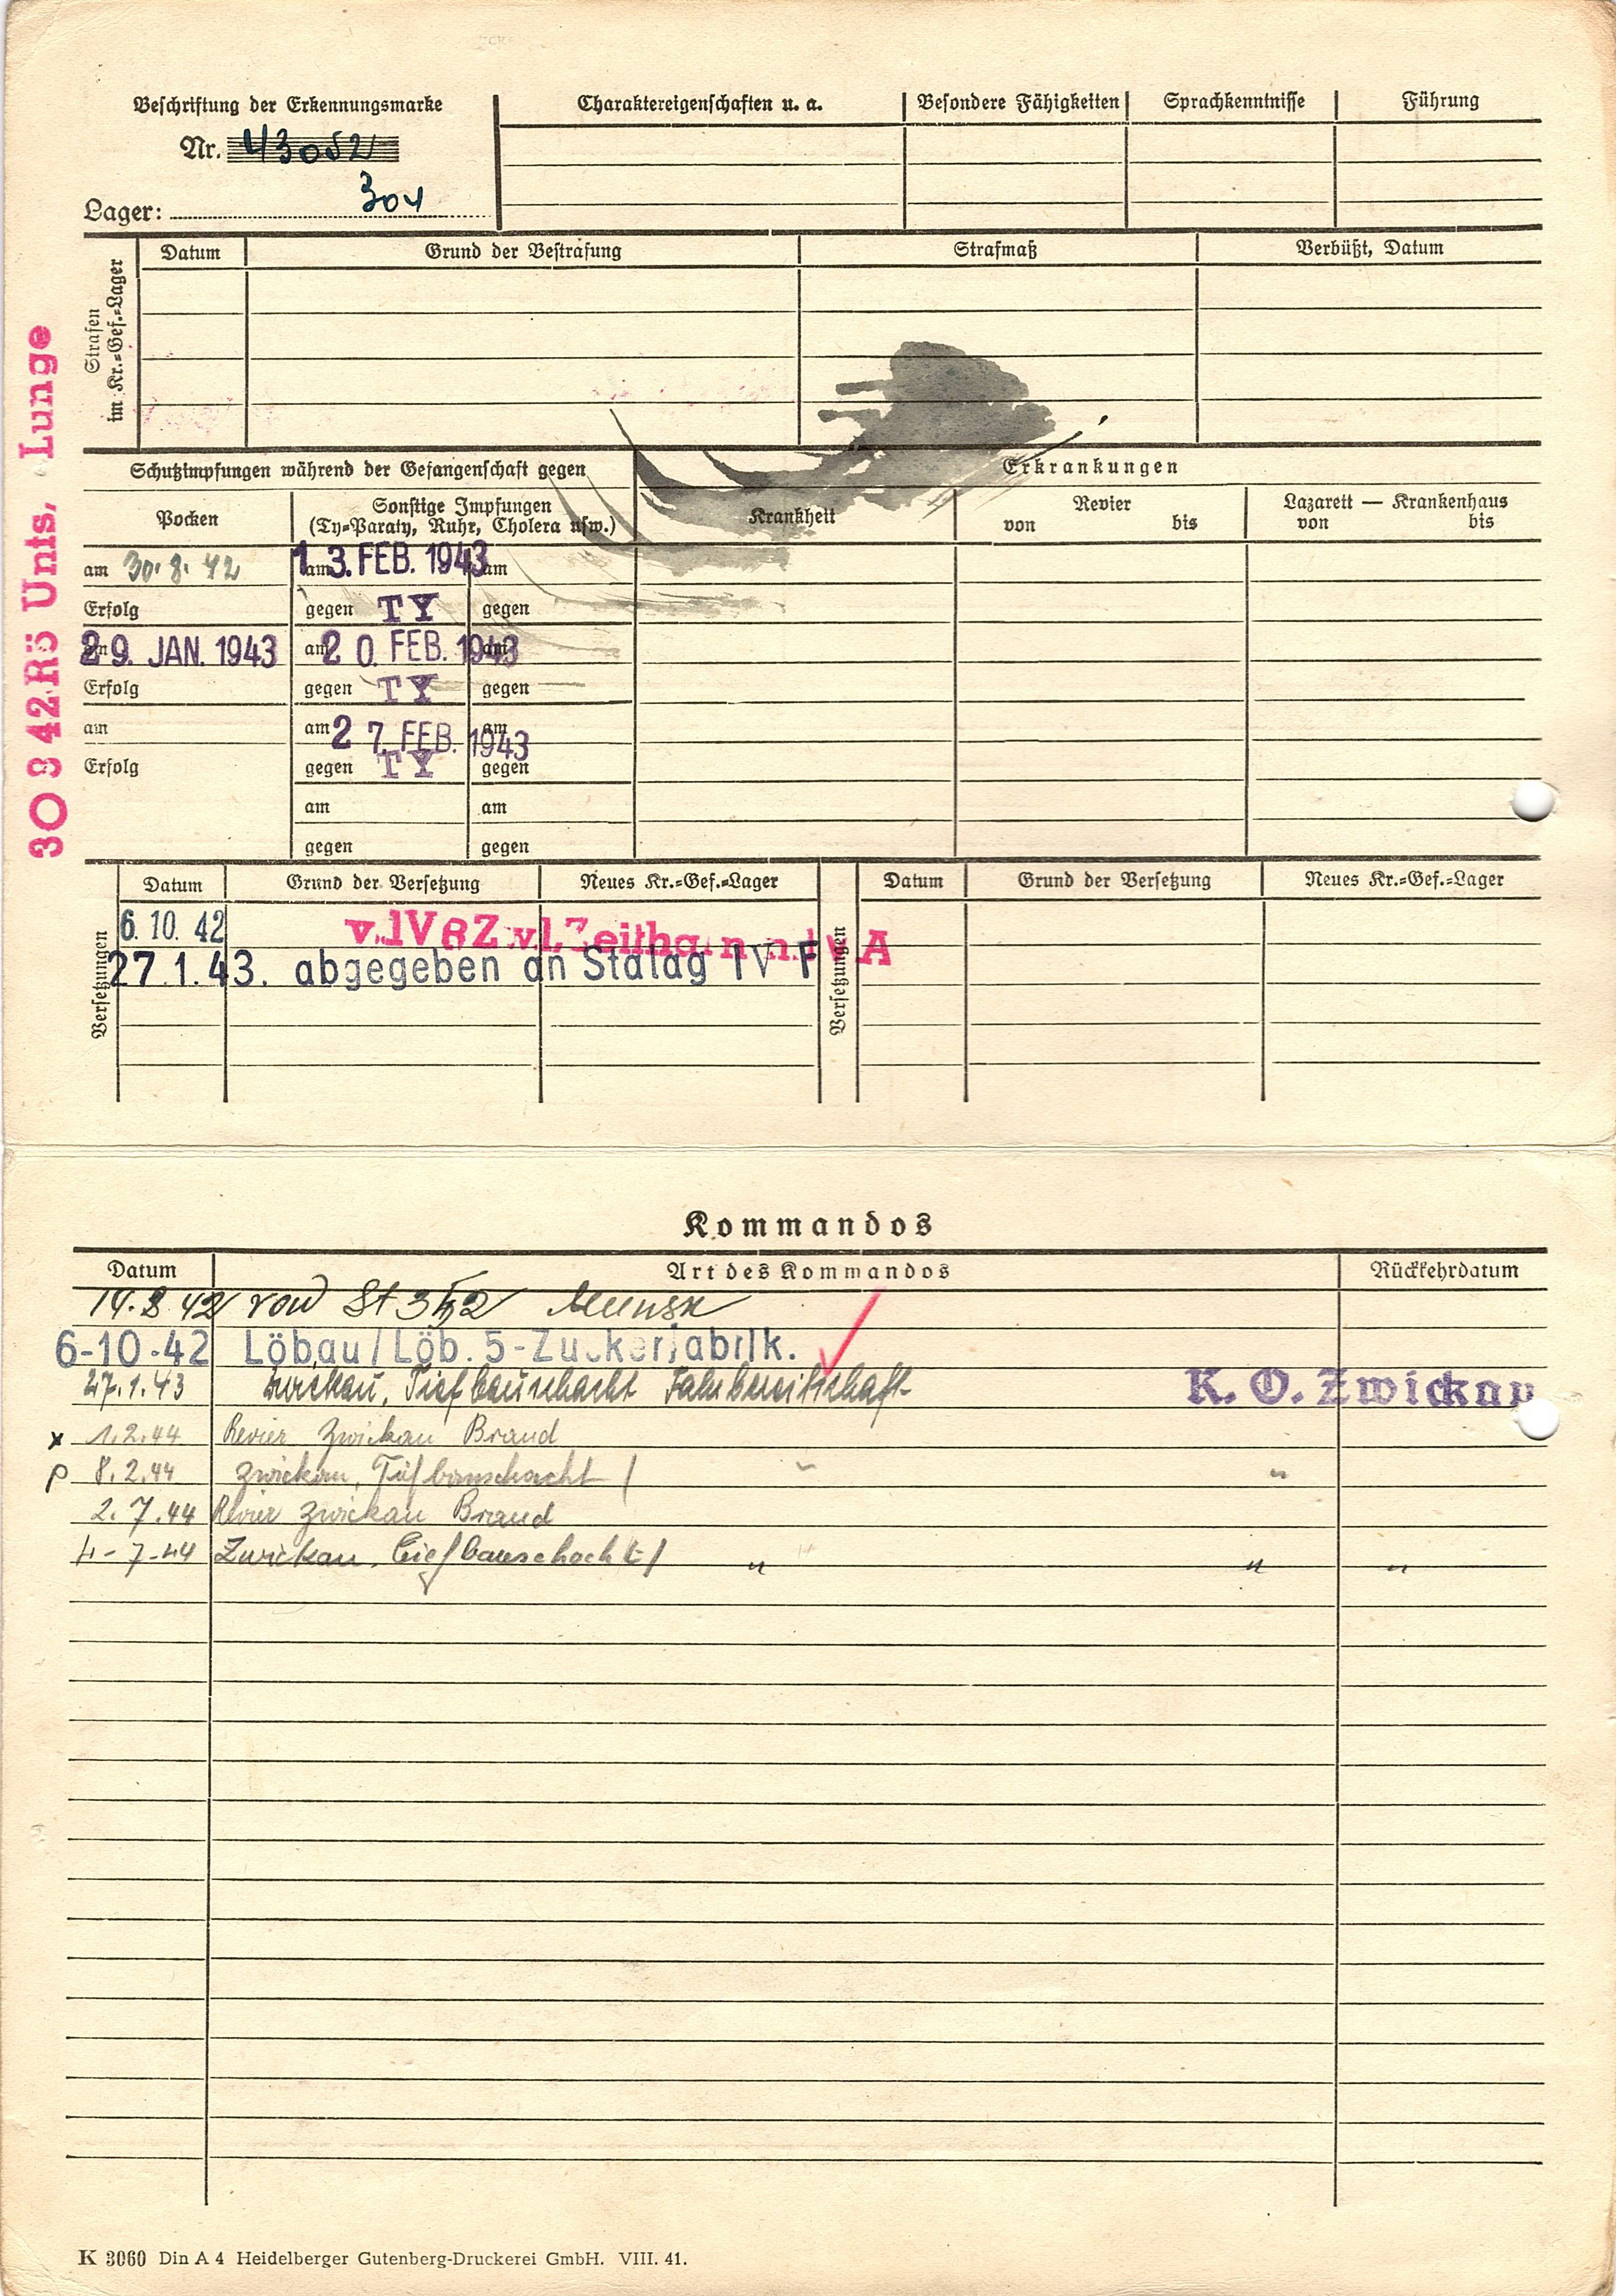 Beschriftung der Erkennungsmarke
Nr. 43052
Lager: 304
Charaktereigenschaften u. a. Besondere Fähigkeiten Sprachkenntnisse Führung
Strafen im Kr.=Gef.=Lager
Datum Grund der Bestrafung Strafmaß Verbüßt, Datum
30 9 42 Rö Unts, Lunge
Schutzimpfungen während der Gefangenschaft gegen
Erkrankungen
Pocken
Sonstige Impfungen
(Ty=Paraty, Ruhr, Cholera usw.)
Krankheit
Revier
von bis
Lazarett — Krankenhaus
von bis
am 30.8.42 am 13. FEB. 1943 am
Erfolg gegen TY gegen
am 29. JAN. 1943 am 20. FEB. 1943 am
Erfolg gegen TY gegen
am am 27. FEB. 1943 am
Erfolg gegen TY gegen
am am
gegen gegen
Versetzungen
Datum Grund der Versetzung Neues Kr.=Gef.=Lager
Versetzungen
Datum Grund der Versetzung Neues Kr.=Gef.=Lager
6. 10. 42 v. IV B Z v. L. Zeithain n. d. A
27. 1. 43. abgegeben an Stalag IV F
Kommandos
Datum Art des Kommandos Rückkehrdatum
14.8.42 von St 352 Minsk
6-10-42 Löbau/Löb. 5-Zuckerfabrik.
27.1.43 Zwickau, Tiefbauschacht Fahrbereitschaft K. O. Zwickau
x 1.2.44 Revier Zwickau Brand
p 8.2.44 Zwickau, Tiefbauschacht / " "
2.7.44 Revier Zwickau Brand
4-7-44 Zwickau, Tiefbauschacht / " " "
K 3060 Din A 4 Heidelberger Gutenberg-Druckerei GmbH. VIII. 41.